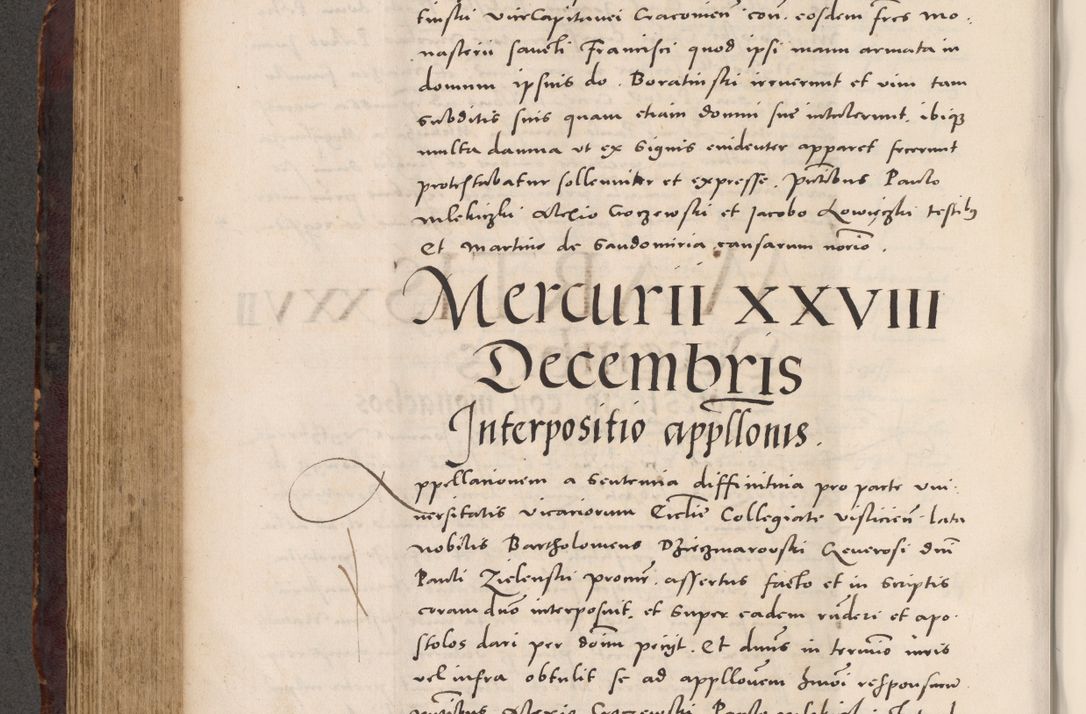 tinski viceCapitanei Cracovien̄ con. eosdem fr̄es mo.
nasterii sancti Francisci quod ipsi manu armata in
domum ipsius do. Boratinski irruerunt et vim tam
subditis suis quam etiam domui sue intulerunt. ibiqꝫ
multa damna ut ex signis evidenter apparet fecerunt
protestabatur sollemniter et expresse. Pn̄tibus Paulo
Mlekiczki Alexio Goczewski et Jacobo Lowiczki testibꝫ
Et Martino de Sandomiria causarum no͞rio.
Mercurii XXVIII
Decembris
Interpositio appllonis.
Appellationem a sententia diffinitiva pro parte uni-
versitatis vicariorum Ecclīe Collegiate Visliciēn. lata
nobilis Bartholomeus Dzieczmarowski Generosi dnī
Pauli Zielenski procur̄. assertus facto et in scriptis
coram dn̄o interposuit. et super eadem rn̄deri et apo-
stolos dari per doīm petiit. Et dn̄us in termīo iuris
vel infra obtulit se ad appllonem hmōi responsurū